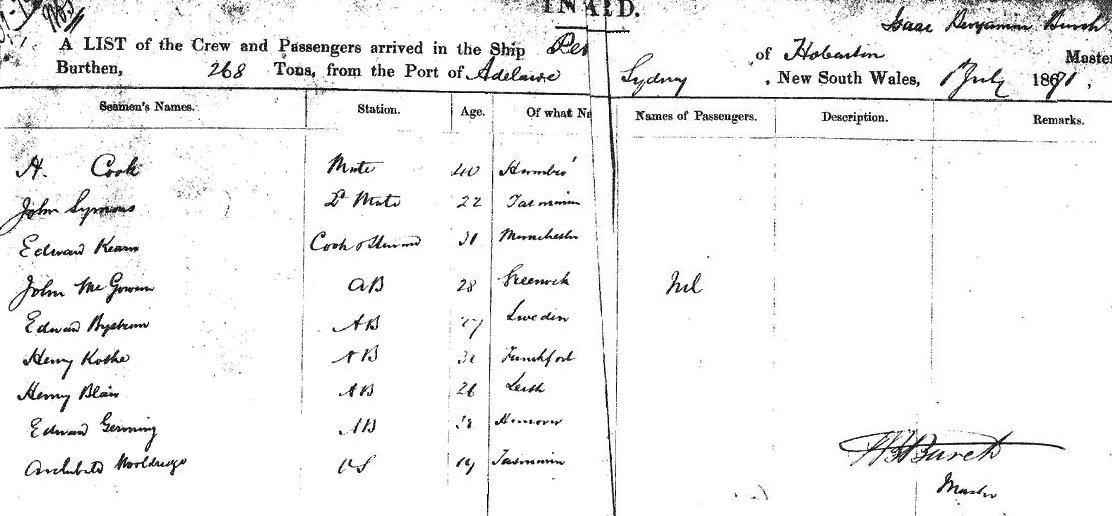 INARD.
Isaac Benjamin Burch
A LIST of the Crew and Passengers arrived in the Ship of Hobarton Master
Burthen, 268 Tons, from the Port of Adelaide Sydney , New South Wales, 1 July 1871,
Seamen's Names. Station. Age. Of what Na Names of Passengers. Description. Remarks.
H. Cook Mate 40
John Symons 2d Mate 22 Tasmania
Edward Kearn Cook & Steward 31 Manchester
John McGowan AB 28 Greenock Nil
Edward Bystrum AB 27 Sweden
Henry Kothe AB Frankfort
Henry Blair AB 26 Leith
Edward Germing AB 38 Hanover
Archibald Wooldredge OS 19 Tasmania
I B Burch
Master